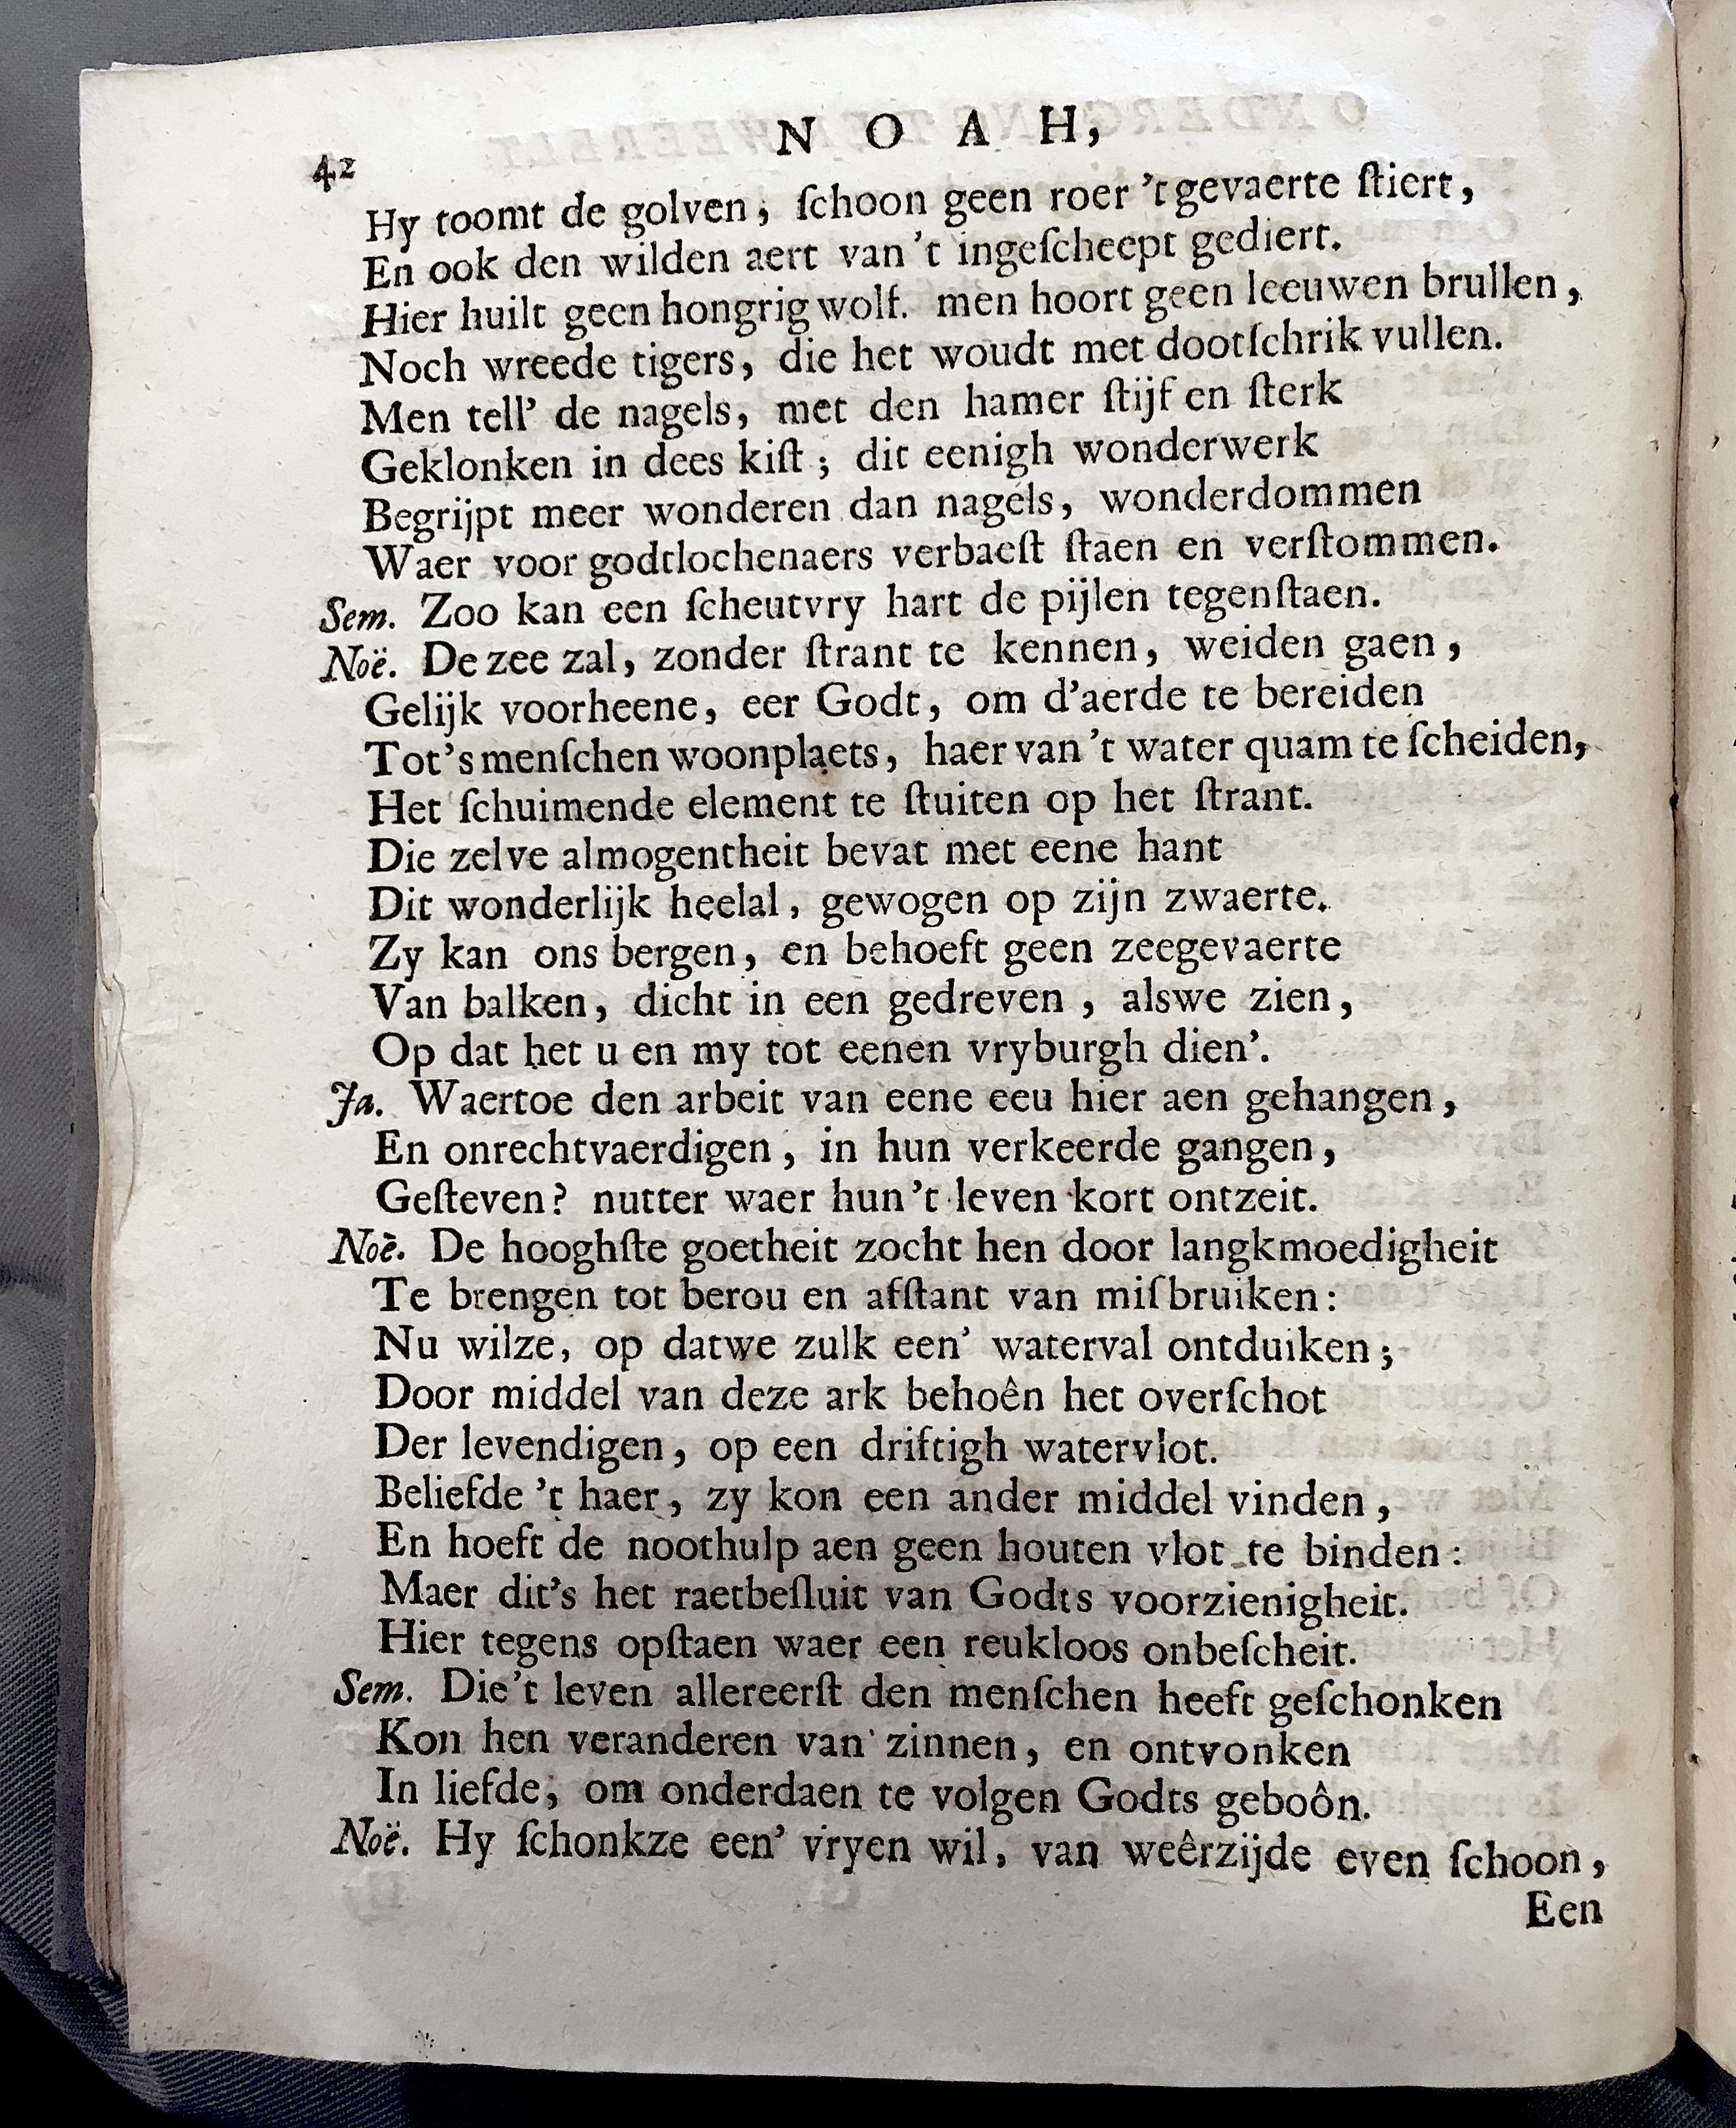 NOAH,
42
Hy toomt de golven, ſchoon geen roer 't gevaerte ſtiert,
En ook den wilden aert van 't ingeſcheept gediert.
Hier huilt geen hongrig wolf. men hoort geen leeuwen brullen,
Noch wreede tigers, die het woudt met dootſchrik vullen.
Men tell' de nagels, met den hamer ſtijf en ſterk
Geklonken in dees kiſt; dit eenigh wonderwerk
Begrijpt meer wonderen dan nagels, wonderdommen
Waer voor godtlochenaers verbaeſt ſtaen en verſtommen.
Sem. Zoo kan een ſcheutvry hart de pijlen tegenſtaen.
Noë. De zee zal, zonder ſtrant te kennen, weiden gaen,
Gelijk voorheene, eer Godt, om d'aerde te bereiden
Tot 's menſchen woonplaets, haer van 't water quam te ſcheiden,
Het ſchuimende element te ſtuiten op het ſtrant.
Die zelve almogentheit bevat met eene hant
Dit wonderlijk heelal, gewogen op zijn zwaerte.
Zy kan ons bergen, en behoeft geen zeegevaerte
Van balken, dicht in een gedreven, alswe zien,
Op dat het u en my tot eenen vryburgh dien'.
Ja. Waertoe den arbeit van eene eeu hier aen gehangen,
En onrechtvaerdigen, in hun verkeerde gangen,
Geſteven? nutter waer hun 't leven kort ontzeit.
Noë. De hooghſte goetheit zocht hen door langkmoedigheit
Te brengen tot berou en afſtant van miſbruiken:
Nu wilze, op datwe zulk een' waterval ontduiken;
Door middel van deze ark behoên het overſchot
Der levendigen, op een driftigh watervlot.
Beliefde 't haer, zy kon een ander middel vinden,
En hoeft de noothulp aen geen houten vlot te binden:
Maer dit's het raetbeſluit van Godts voorzienigheit.
Hier tegens opſtaen waer een reukloos onbeſcheit.
Sem. Die 't leven allereerſt den menſchen heeft geſchonken
Kon hen veranderen van zinnen, en ontvonken
In liefde, om onderdaen te volgen Godts geboôn.
Noë. Hy ſchonkze een' vryen wil, van weêrzijde even ſchoon,
Een